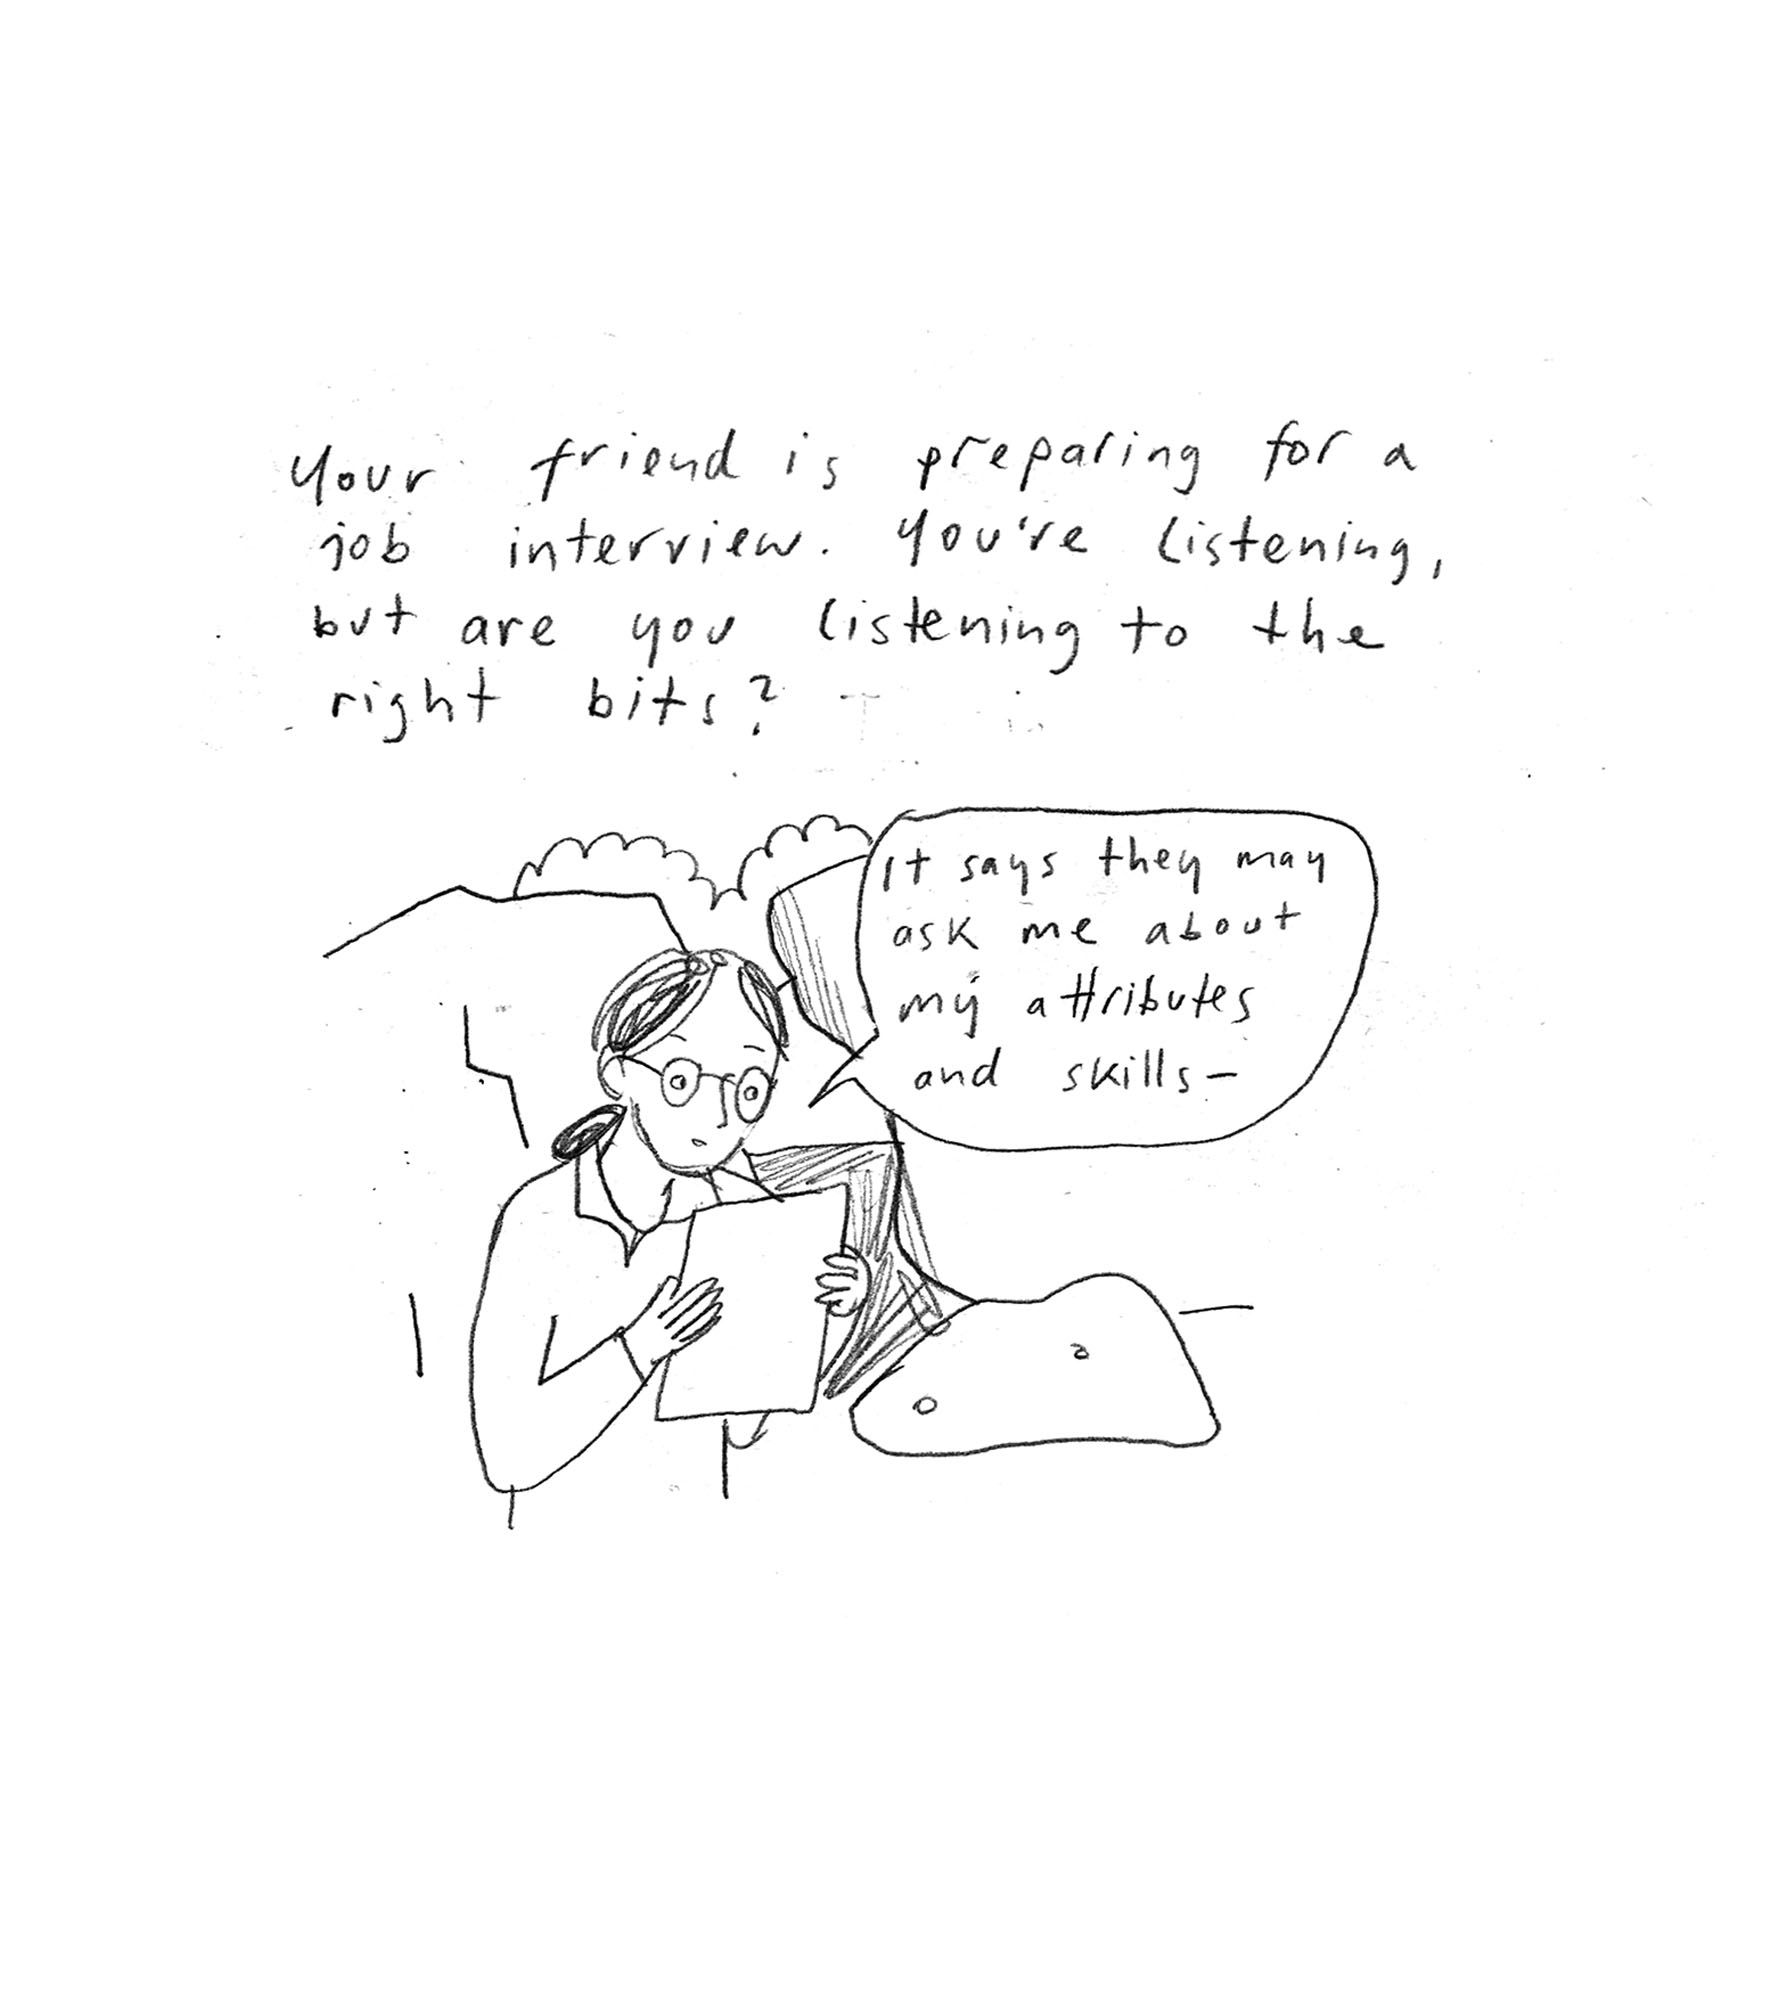 Your friend is preparing for a
job interview. You're listening,
but are you listening to the
right bits?
It says they may
ask me about
my attributes
and skills-